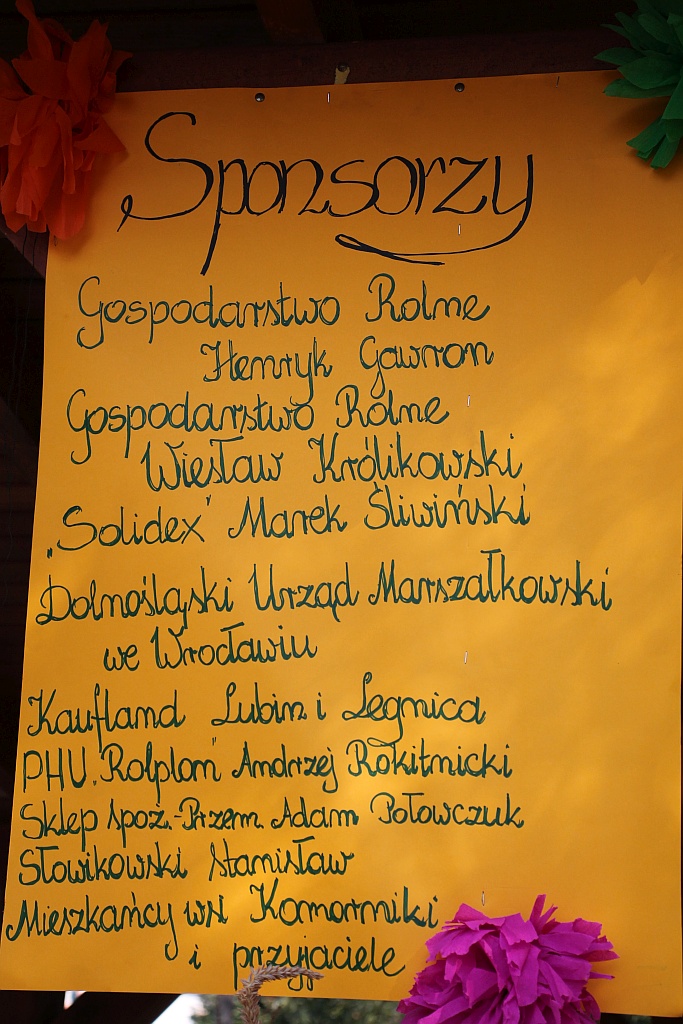 Sponsorzy
Gospodarstwo Rolne
Henryk Gawron
Gospodarstwo Rolne
Wiesław Królikowski
„Solidex” Marek Śliwiński
Dolnośląski Urząd Marszałkowski
we Wrocławiu
Kaufland Lubin i Legnica
PHU „Rolplon” Andrzej Rokitnicki
Sklep spoż.-Przem. Adam Połowczuk
Słowikowski Stanisław
Mieszkańcy wsi Komorniki
i przyjaciele